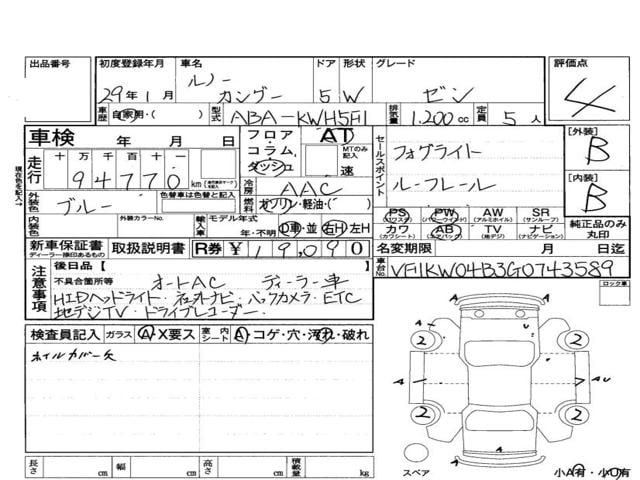 出品番号 初度登録年月 車名 ドア 形状 グレード 評価点
29年1月 ルノー カングー 5 W ゼン 4
車歴 自家用・( ) 型式 ABA-KWH5F1 排気量 1.200cc 定員 5人
車検 年 月 日 フロア・コラム・ダッシュ AT MTのみ記入 速
走行 十万千百十一 94770 km
セールスポイント フォグライト
ルーフレール
[外装] B
[内装] B
冷房 AAC
外装色 ブルー 色替車は色替と記入 燃料 ガソリン・軽油・( )
内装色 外装カラーNo. 輸入車 モデル年式 年・不明 D車・並 右H 左H
PS (パワーステ) PW (パワーウインド) AW (アルミホイル) SR (サンルーフ)
カワ (カワシート) AB (エアバック) TV (地デジ) ナビ (ナビゲーション)
純正品のみ丸印
新車保証書 ディーラー捺印あるもの 取扱説明書 R券 ¥19,090 名変期限 月 日迄
車台No. VF1KW04B3G0743589
注意事項 後日品【 】
不具合箇所等 オートAC ディーラー車
HIDヘッドライト・ネオトナビ・バックカメラ・ETC
地デジTV・ドライブレコーダー
ロック車
検査員記入 ガラス A・X要ス 室内シート A・コゲ・穴・汚れ・破れ
ホイルカバーキズ
A
A U
2 2
A A A U
2 2
A
スペア 小A有・小U有
長さ cm 幅 cm 高さ cm 積載量 kg
現在色を記入